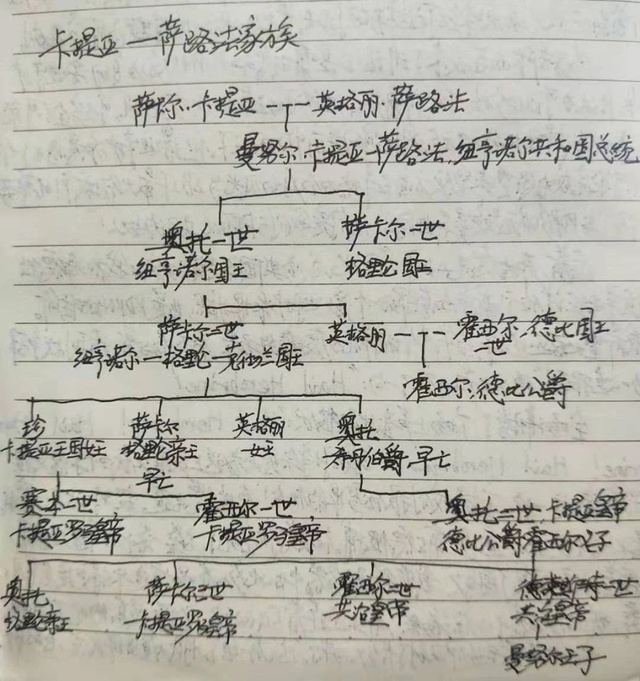 卡提亚一萨路法家族
萨尔·卡提亚 英格丽·萨路法
曼努尔·卡提亚-萨路法,纽亨诺尔共和国总统
奥托一世 萨卡尔一世
纽亨诺尔国王 格里伦国王
萨卡尔二世 英格丽 霍西尔·德比国王
纽亨诺尔-格里伦- 国王 二世
霍西尔·德比公爵
珍 萨卡尔 英格丽 奥托
卡提亚王国女王 格里伦亲王 女王 伯爵·早亡
早亡
赛本一世 霍西尔一世 奥托二世 卡提亚皇帝
卡提亚罗马皇帝 卡提亚罗马皇帝 德比公爵霍西尔之子
奥托 萨卡尔三世 霍西尔二世 一世
亲王 卡提亚罗马皇帝 共治皇帝 共治皇帝
曼努尔王子